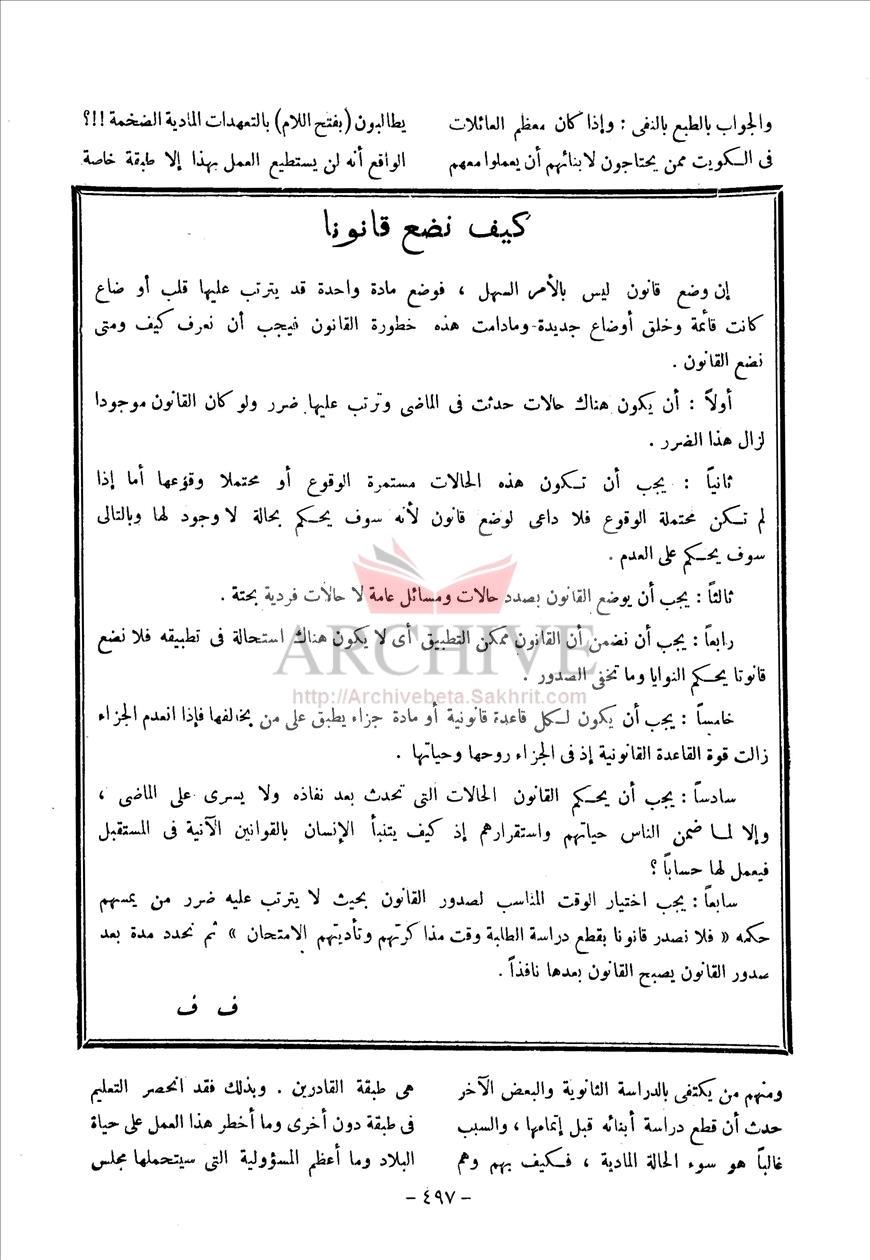 والجواب بالطبع بالنفى : وإذا كان معظم العائلات
فى الكويت ممن يحتاجون لابنائهم أن يعملوا معهم
يطالبون (بفتح اللام) بالتعهدات المادية الضخمة !!؟
الواقع أنه لن يستطيع العمل بهذا إلا طبقة خاصة
كيف نضع قانونا
إن وضع قانون ليس بالأمر السهل ، فوضع مادة واحدة قد يترتب عليها قلب أو ضاع
كانت قائمة وخلق أوضاع جديدة ومادامت هذه خطورة القانون فيجب أن نعرف كيف ومتى
نضع القانون .
أولاً : أن يكون هناك حالات حدثت فى الماضى وترتب عليها ضرر ولو كان القانون موجودا
لزال هذا الضرر .
ثانياً : يجب أن تكون هذه الحالات مستمرة الوقوع أو محتملا وقوعها أما إذا
لم تكن محتملة الوقوع فلا داعى لوضع قانون لأنه سوف يحكم بحالة لا وجود لها وبالتالى
سوف يحكم على العدم .
ثالثاً : يجب أن يوضع القانون بصدد حالات ومسائل عامة لا حالات فردية بحتة .
رابعاً : يجب أن نضمن أن القانون ممكن التطبيق أى لا يكون هناك استحالة فى تطبيقه فلا نضع
ARCHIVE
قانونا يحكم النوايا وما تخفى الصدور .
http://Archivebeta.Sakhrit.com
خامساً : يجب أن يكون لكل قاعدة قانونية أو مادة جزاء يطبق على من يخالفها فإذا انعدم الجزاء
زالت قوة القاعدة القانونية إذ فى الجزاء روحها وحياتها .
سادساً : يجب أن يحكم القانون الحالات التى تحدث بعد نفاذه ولا يسرى على الماضى ،
وإلا لما ضمن الناس حياتهم واستقرارهم إذ كيف يتنبأ الإنسان بالقوانين الآنية فى المستقبل
فيعمل لها حساباً ؟
سابعاً : يجب اختيار الوقت المناسب لصدور القانون بحيث لا يترتب عليه ضرر من يمسهم
حكمه « فلا نصدر قانونا بقطع دراسة الطلبة وقت مذاكرتهم وتأديتهم الامتحان » ثم نحدد مدة بعد
صدور القانون يصبح القانون بعدها نافذاً .
ف ف
ومنهم من يكتفى بالدراسة الثانوية والبعض الآخر
حدث أن قطع دراسة أبنائه قبل إتمامها ، والسبب
غالباً هو سوء الحالة المادية ، فكيف بهم وهم
هى طبقة القادرين . وبذلك فقد انحصر التعليم
فى طبقة دون أخرى وما أخطر هذا العمل على حياة
البلاد وما أعظم المسؤولية التى سيتحملها مجلس
- ٤٩٧ -